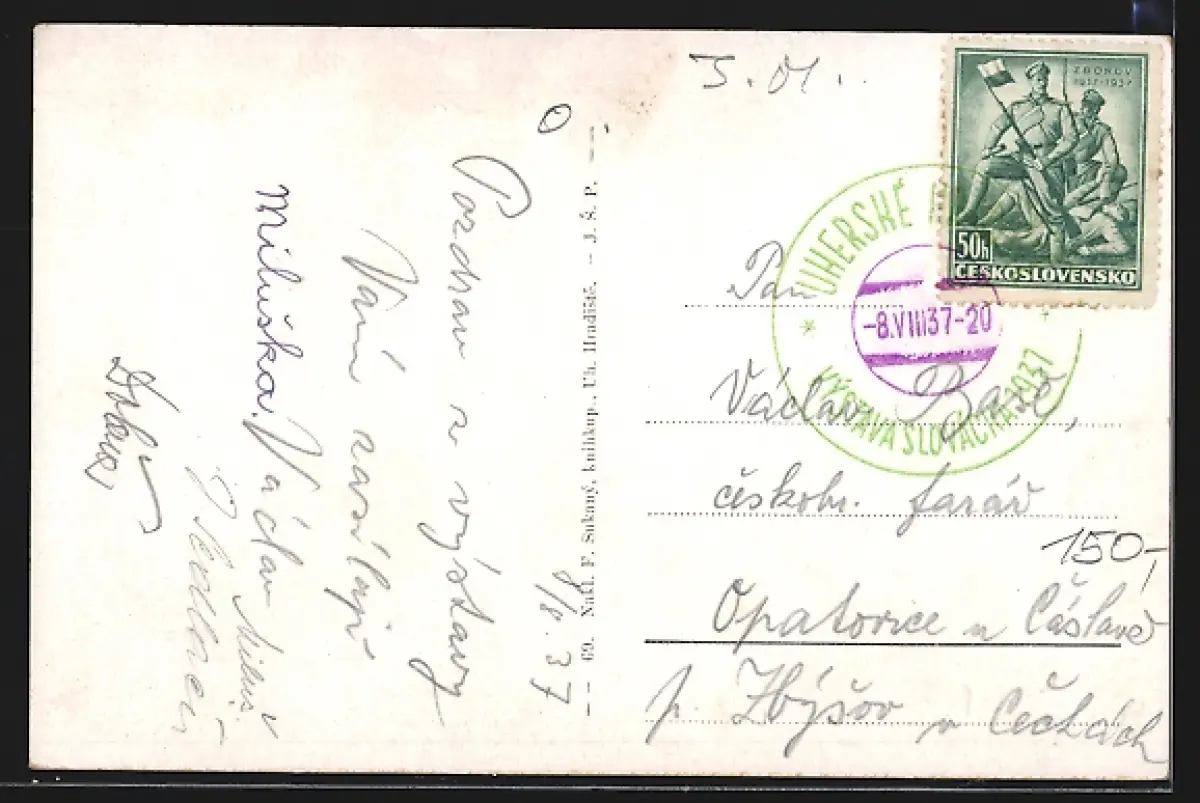 5.01.
ZBOROV
1917-1937
50h
ČESKOSLOVENSKO
UHERSKÉ
VÝSTAVA SLOVÁCKA 1937
-8.VIII37-20
Pan
Václav
českobr. farář
150,-
Opatovice u Čáslavě
p. Zbýšov v Čechách
8/8.37
Pozdrav z výstavy
Vám zasílají
Miluška. Václav
69. Nakl. F. Sukaný, knihkup., Uh. Hradiště. – J. Š. P.